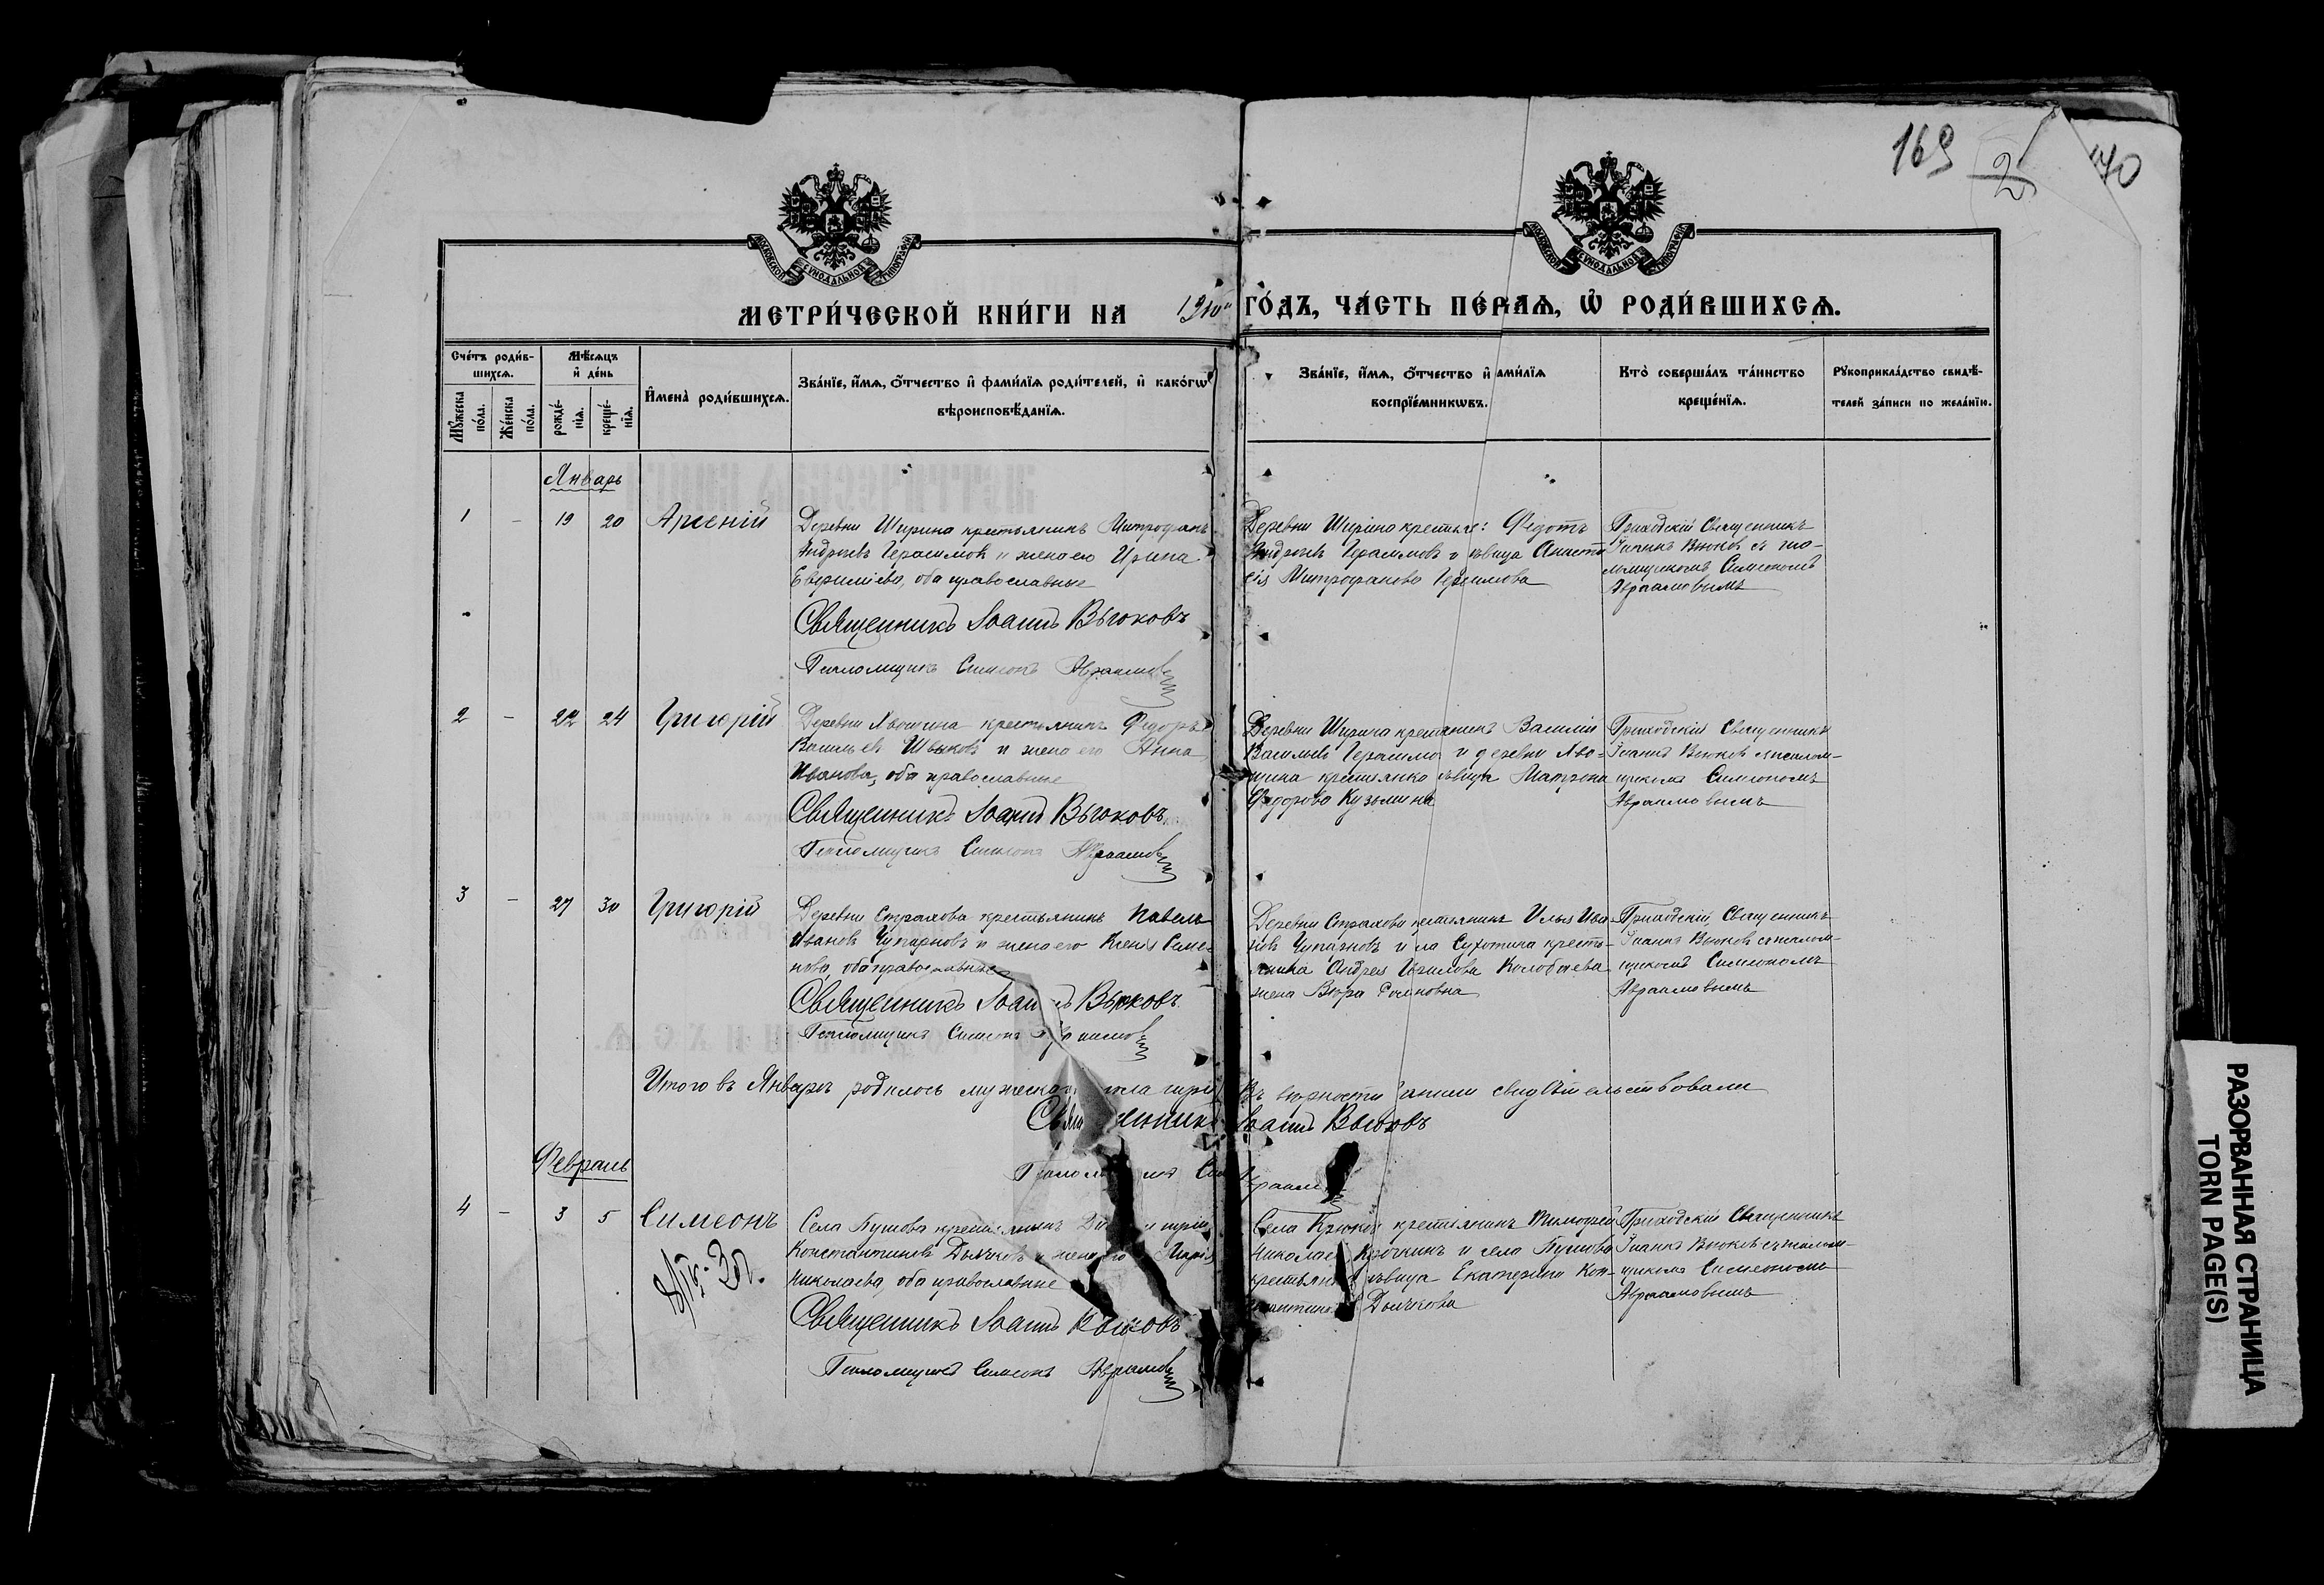 169
2
170
МОСКОВСКОЙ СѴНОДАЛЬНОЙ ТИПОГРАФІИ
МОСКОВСКОЙ СѴНОДАЛЬНОЙ ТИПОГРАФІИ
МЕТРИ́ЧЕСКОЙ КНИ́ГИ НА 1910 ГО́ДЪ, ЧА́СТЬ ПЕ́РВАѦ, Ѡ҆ РОДИ́ВШИХСѦ.
Сче́тъ роди́в-
шихсѧ.
Мꙋ́жеска по́ла.
Же́нска по́ла.
Мѣ́сѧцъ
и҆ де́нь
рожде́-
нїѧ.
креще́-
нїѧ.
И҆мена̀ роди́вшихсѧ.
Зва́нїе, и҆́мѧ, ѻ҆́тчество и҆ фами́лїѧ роди́телей, и҆ како́гѡ
вѣроисповѣ́данїѧ.
Зва́нїе, и҆́мѧ, ѻ҆́тчество и҆ фами́лїѧ
воспрїе́мникѡвъ.
Кто̀ соверша́лъ та́инство
креще́нїѧ.
Рꙋкоприкла́дство свидѣ́-
телей за́писи по жела́нїю.
Январь
1 - 19 20 Арсеній
Деревни Ширина крестьянинъ Митрофанъ
Андреевъ Герасимовъ и жена его Ирина
Евфиміева, оба православные
Священникъ Іоаннъ Вьюковъ
Псаломщикъ Симеонъ Авраамовъ
Деревни Ширина крестьяне: Федотъ
Андреевъ Герасимовъ и девица Анаста-
сія Митрофанова Герасимова
Приходскій Священникъ
Іоаннъ Вьюковъ съ пса-
ломщикомъ Симеономъ
Авраамовымъ
2 - 22 24 Григорій
Деревни крестьянинъ Федоръ
Васильевъ и жена его Анна
Иванова, оба православные
Священникъ Іоаннъ Вьюковъ
Псаломщикъ Симеонъ Авраамовъ
Деревни Ширина крестьянинъ Василій
Васильевъ Герасимовъ и деревни
крестьянка девица Матрона
Федорова Кузьмина
Приходскій Священникъ
Іоаннъ Вьюковъ съ псалом-
щикомъ Симеономъ
Авраамовымъ
3 - 27 30 Григорій
Деревни Страхова крестьянинъ Павелъ
Ивановъ и жена его Ксенія Симе-
нова, оба православные
Священникъ Іоаннъ Вьюковъ
Псаломщикъ Симеонъ Авраамовъ
Деревни Страхова крестьянинъ Илья Ива-
новъ и села Сухотина кресть-
янина Андрея Колобаева
жена Вѣра
Приходскій Священникъ
Іоаннъ Вьюковъ съ псалом-
щикомъ Симеономъ
Авраамовымъ
Итого въ Январѣ родилось мужескаго пола три Въ вѣрности записи свидѣтельствовали
Священникъ Іоаннъ Вьюковъ
Псаломщикъ
Февраль
4 - 3 5 Симеонъ
Села крестьянинъ
Константиновъ Дьячковъ и жена его Марія
Николаева, оба православные
Священникъ Іоаннъ Вьюковъ
Псаломщикъ Симеонъ Авраамовъ
Села крестьянинъ Тимофей
Николаевъ и села
крестьянка девица Екатерина Кон-
стантинова Дьячкова
Приходскій Священникъ
Іоаннъ Вьюковъ съ псалом-
щикомъ Симеономъ
Авраамовымъ
РАЗОРВАННАЯ СТРАНИЦА
TORN PAGE(S)